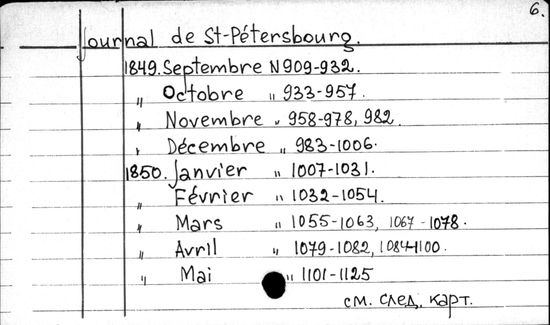 6.
Journal de St-Pétersbourg.
1849. Septembre N 909-932.
" Octobre " 933-957.
" Novembre " 958-978, 982.
" Décembre " 983-1006.
1850. Janvier " 1007-1031.
" Février " 1032-1054.
" Mars " 1055-1063, 1067-1078.
" Avril " 1079-1082, 1084-1100.
" Mai " 1101-1125
см. след. карт.